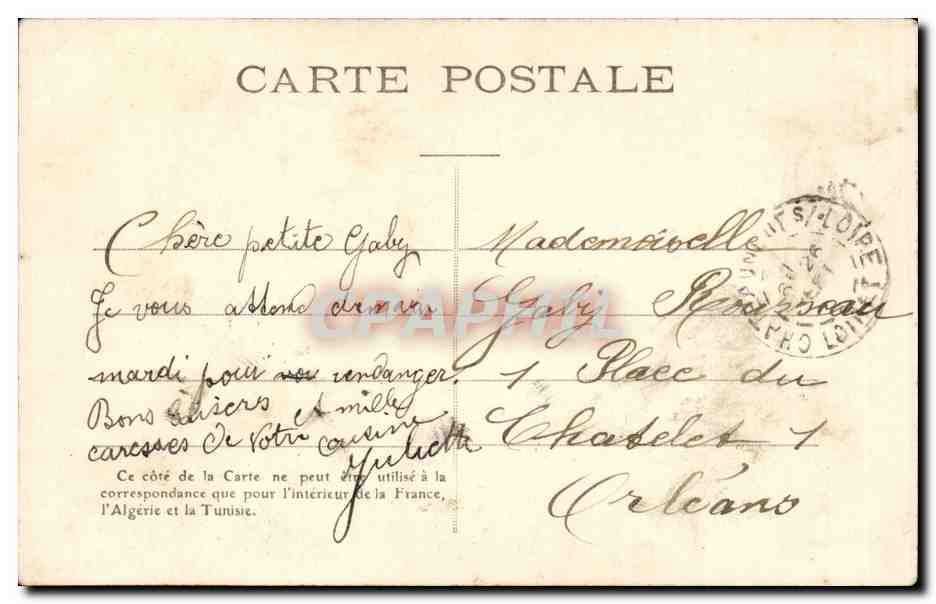 CARTE POSTALE
Chère petite Gaby
Je vous attend demain
mardi pour vendanger.
Bons baisers et mille
caresses de votre cousine
Juliette
Ce côté de la Carte ne peut être utilisé à la
correspondance que pour l'intérieur de la France,
l'Algérie et la Tunisie.
Mademoiselle
Gaby Rousseau
1 Place du
Chatelet 1
Orléans
S/ LOIRE
LOIRET
CPAPHIL